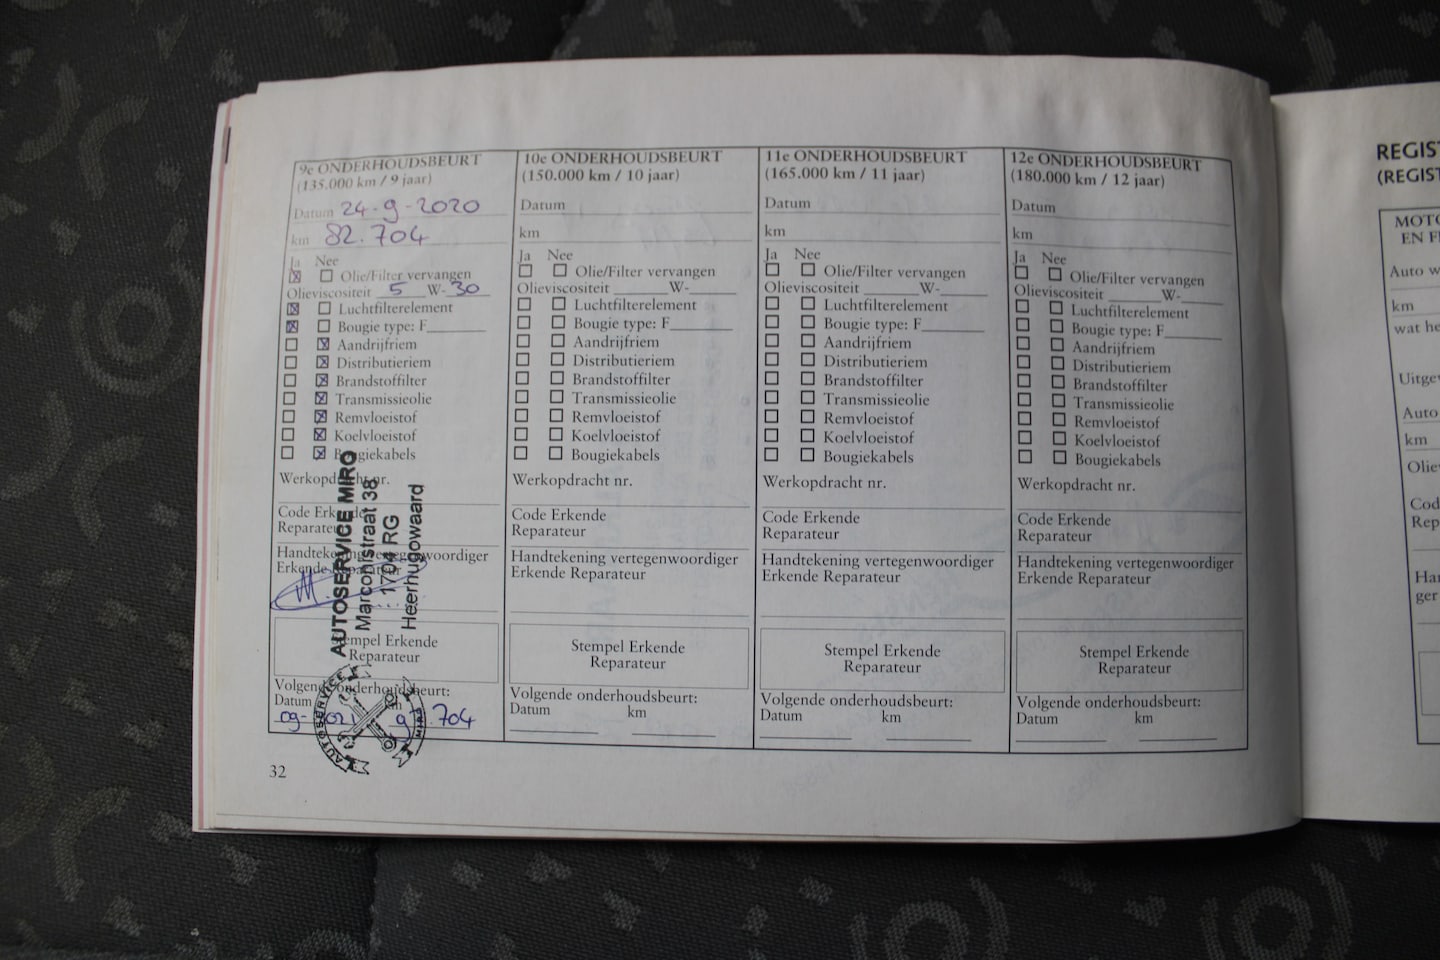 9e ONDERHOUDSBEURT
(135.000 km / 9 jaar)
Datum 24-9-2020
km 82.704
Ja Nee
Olie/Filter vervangen
Olieviscositeit 5 W-30
Luchtfilterelement
Bougie type: F
Aandrijfriem
Distributieriem
Brandstoffilter
Transmissieolie
Remvloeistof
Koelvloeistof
Bougiekabels
Werkopdracht nr.
Code Erkende
Reparateur
Handtekening vertegenwoordiger
Erkende Reparateur
Stempel Erkende
Reparateur
Volgende onderhoudsbeurt:
Datum
704
AUTOSERVICE MIRO
Marconistraat 38
1704 RG
Heerhugowaard
AUTOSERVICE
10e ONDERHOUDSBEURT
(150.000 km / 10 jaar)
Datum
km
Ja Nee
Olie/Filter vervangen
Olieviscositeit W-
Luchtfilterelement
Bougie type: F
Aandrijfriem
Distributieriem
Brandstoffilter
Transmissieolie
Remvloeistof
Koelvloeistof
Bougiekabels
Werkopdracht nr.
Code Erkende
Reparateur
Handtekening vertegenwoordiger
Erkende Reparateur
Stempel Erkende
Reparateur
Volgende onderhoudsbeurt:
Datum km
11e ONDERHOUDSBEURT
(165.000 km / 11 jaar)
Datum
km
Ja Nee
Olie/Filter vervangen
Olieviscositeit W-
Luchtfilterelement
Bougie type: F
Aandrijfriem
Distributieriem
Brandstoffilter
Transmissieolie
Remvloeistof
Koelvloeistof
Bougiekabels
Werkopdracht nr.
Code Erkende
Reparateur
Handtekening vertegenwoordiger
Erkende Reparateur
Stempel Erkende
Reparateur
Volgende onderhoudsbeurt:
Datum km
12e ONDERHOUDSBEURT
(180.000 km / 12 jaar)
Datum
km
Ja Nee
Olie/Filter vervangen
Olieviscositeit W-
Luchtfilterelement
Bougie type: F
Aandrijfriem
Distributieriem
Brandstoffilter
Transmissieolie
Remvloeistof
Koelvloeistof
Bougiekabels
Werkopdracht nr.
Code Erkende
Reparateur
Handtekening vertegenwoordiger
Erkende Reparateur
Stempel Erkende
Reparateur
Volgende onderhoudsbeurt:
Datum km
32
REGIST
(REGIST
MOTO
EN F
Auto w
km
wat he
Uitgev
Auto
km
Olie
Cod
Rep
Han
ger